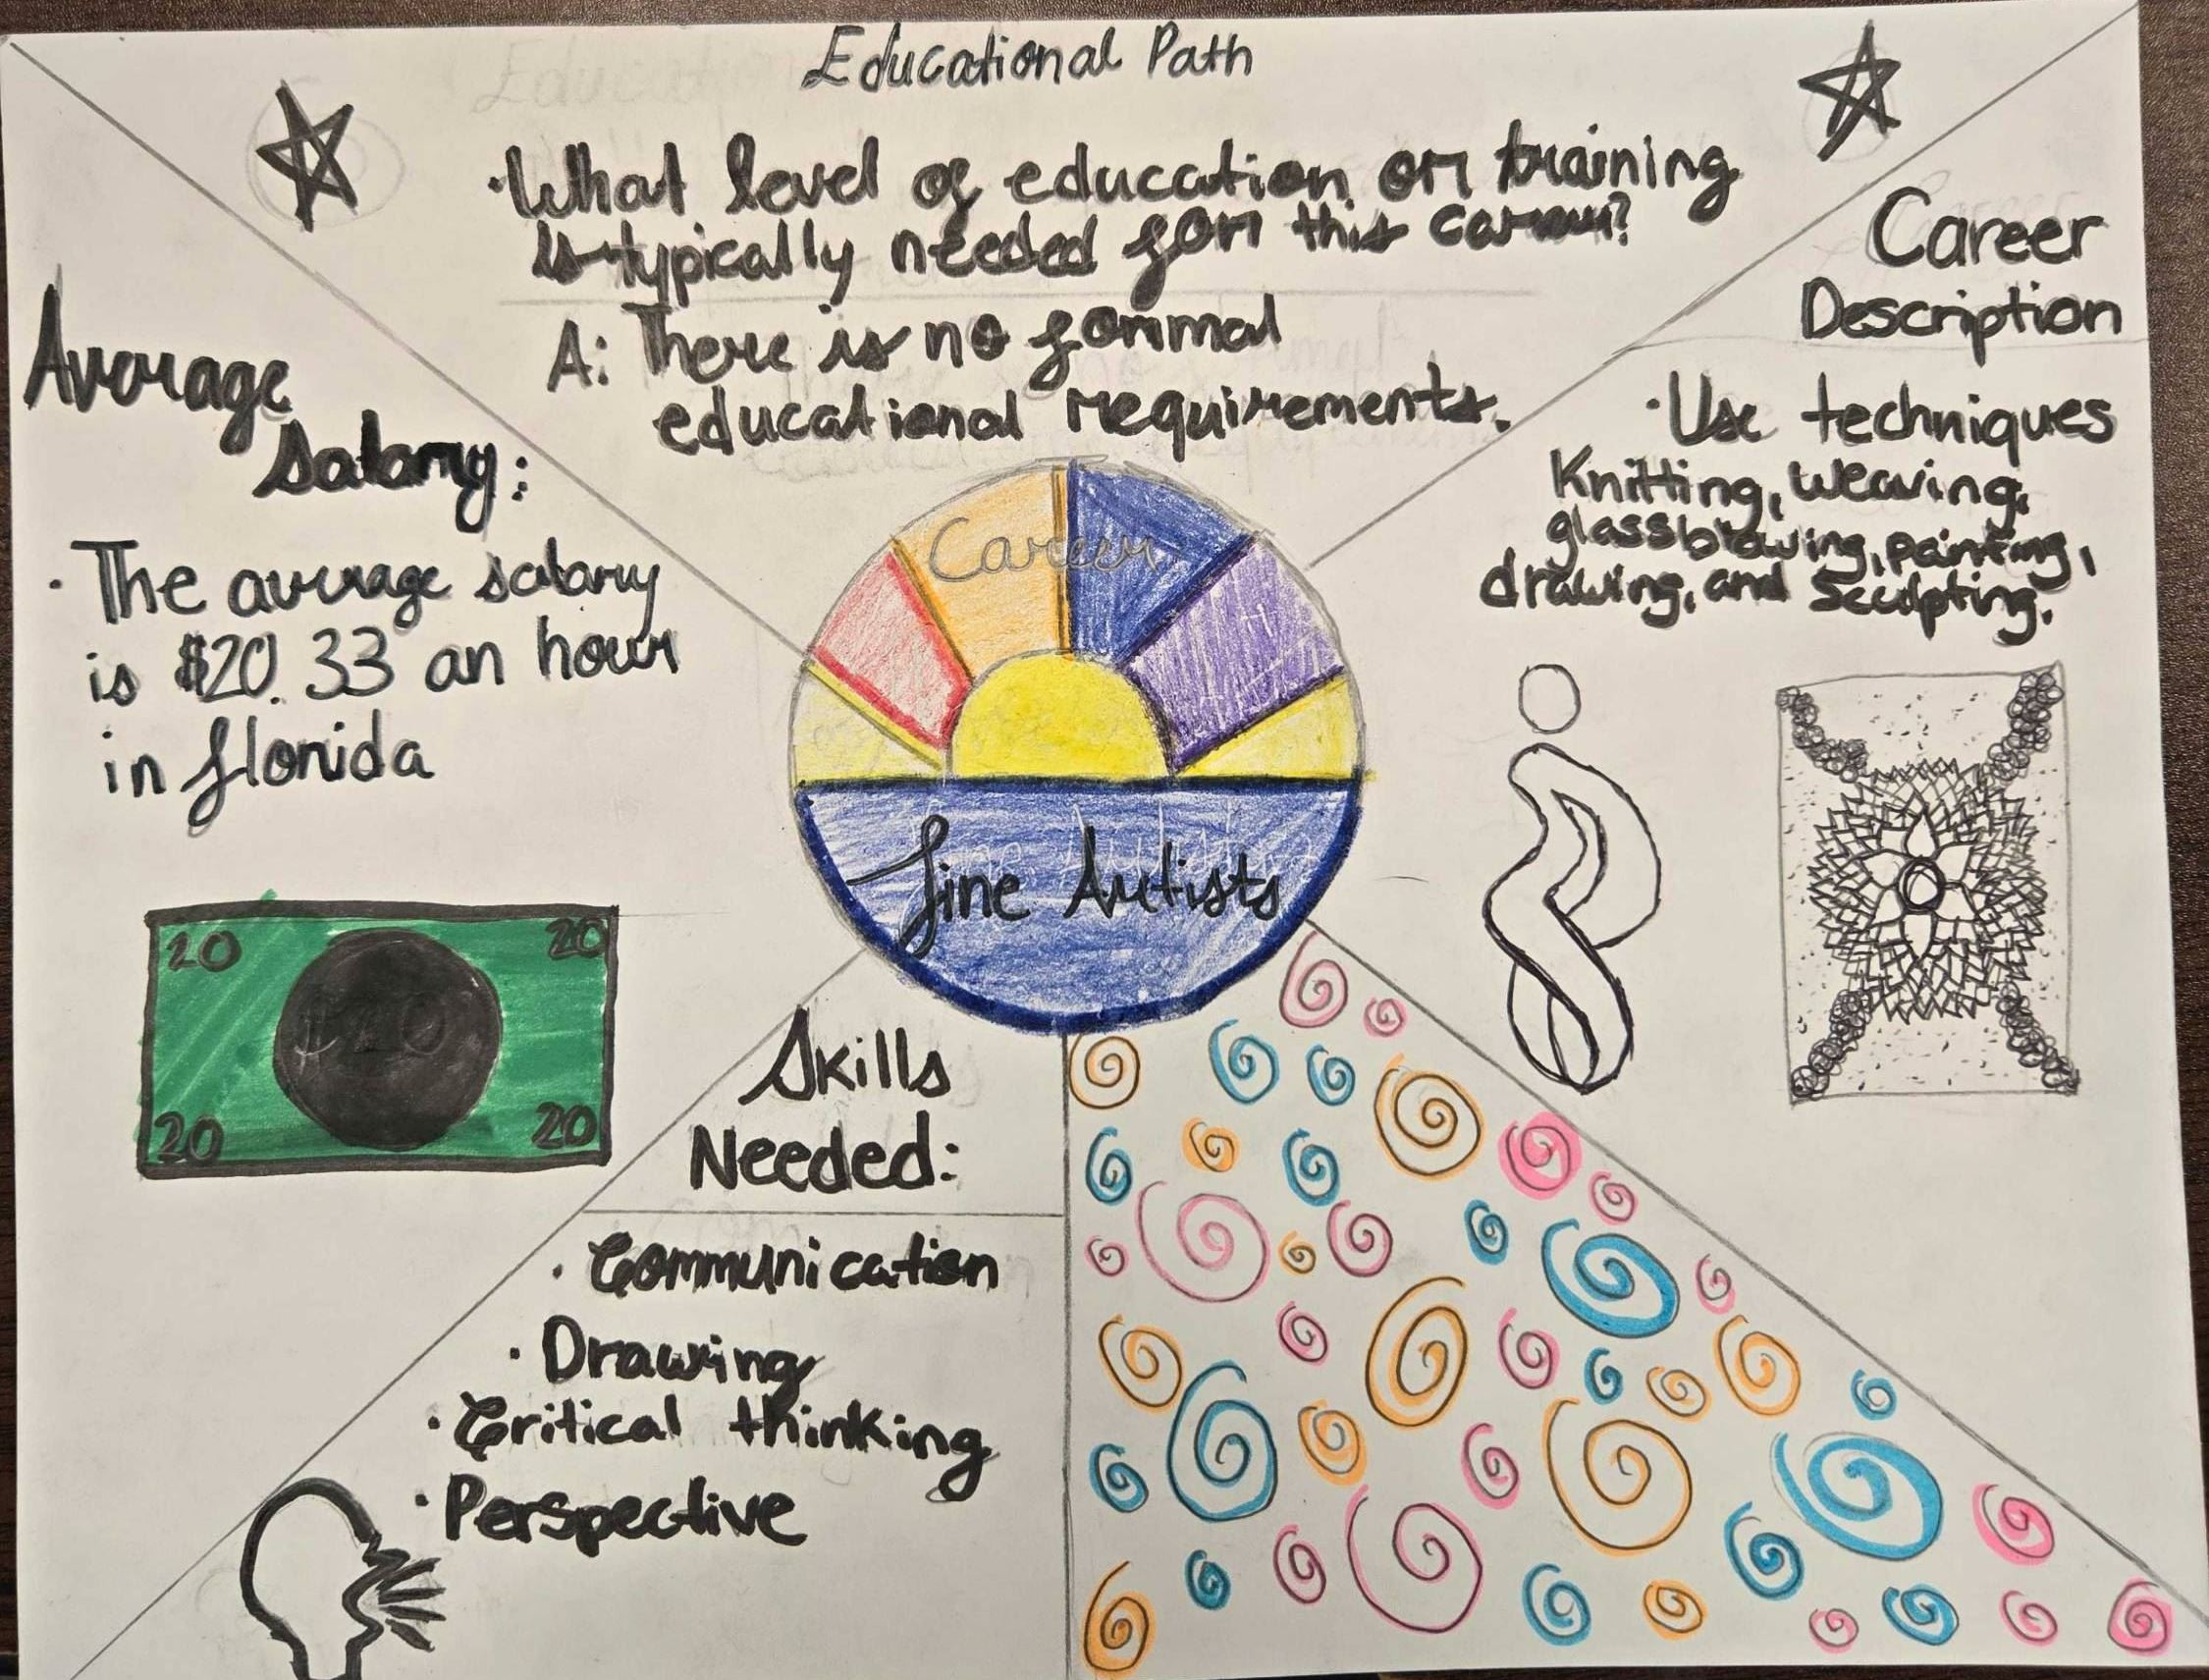 Educational Path
·What level of education or training
is typically needed for this career?
A: There is no formal
educational requirements.
Average
Salary:
·The average salary
is $20.33 an hour
in florida
20 20
$20
20 20
Career
Description
·Use techniques
Knitting, weaving,
glassblowing, painting,
drawing, and Sculpting.
Career
fine Artists
Skills
Needed:
·Communication
·Drawing
·Critical thinking
·Perspective